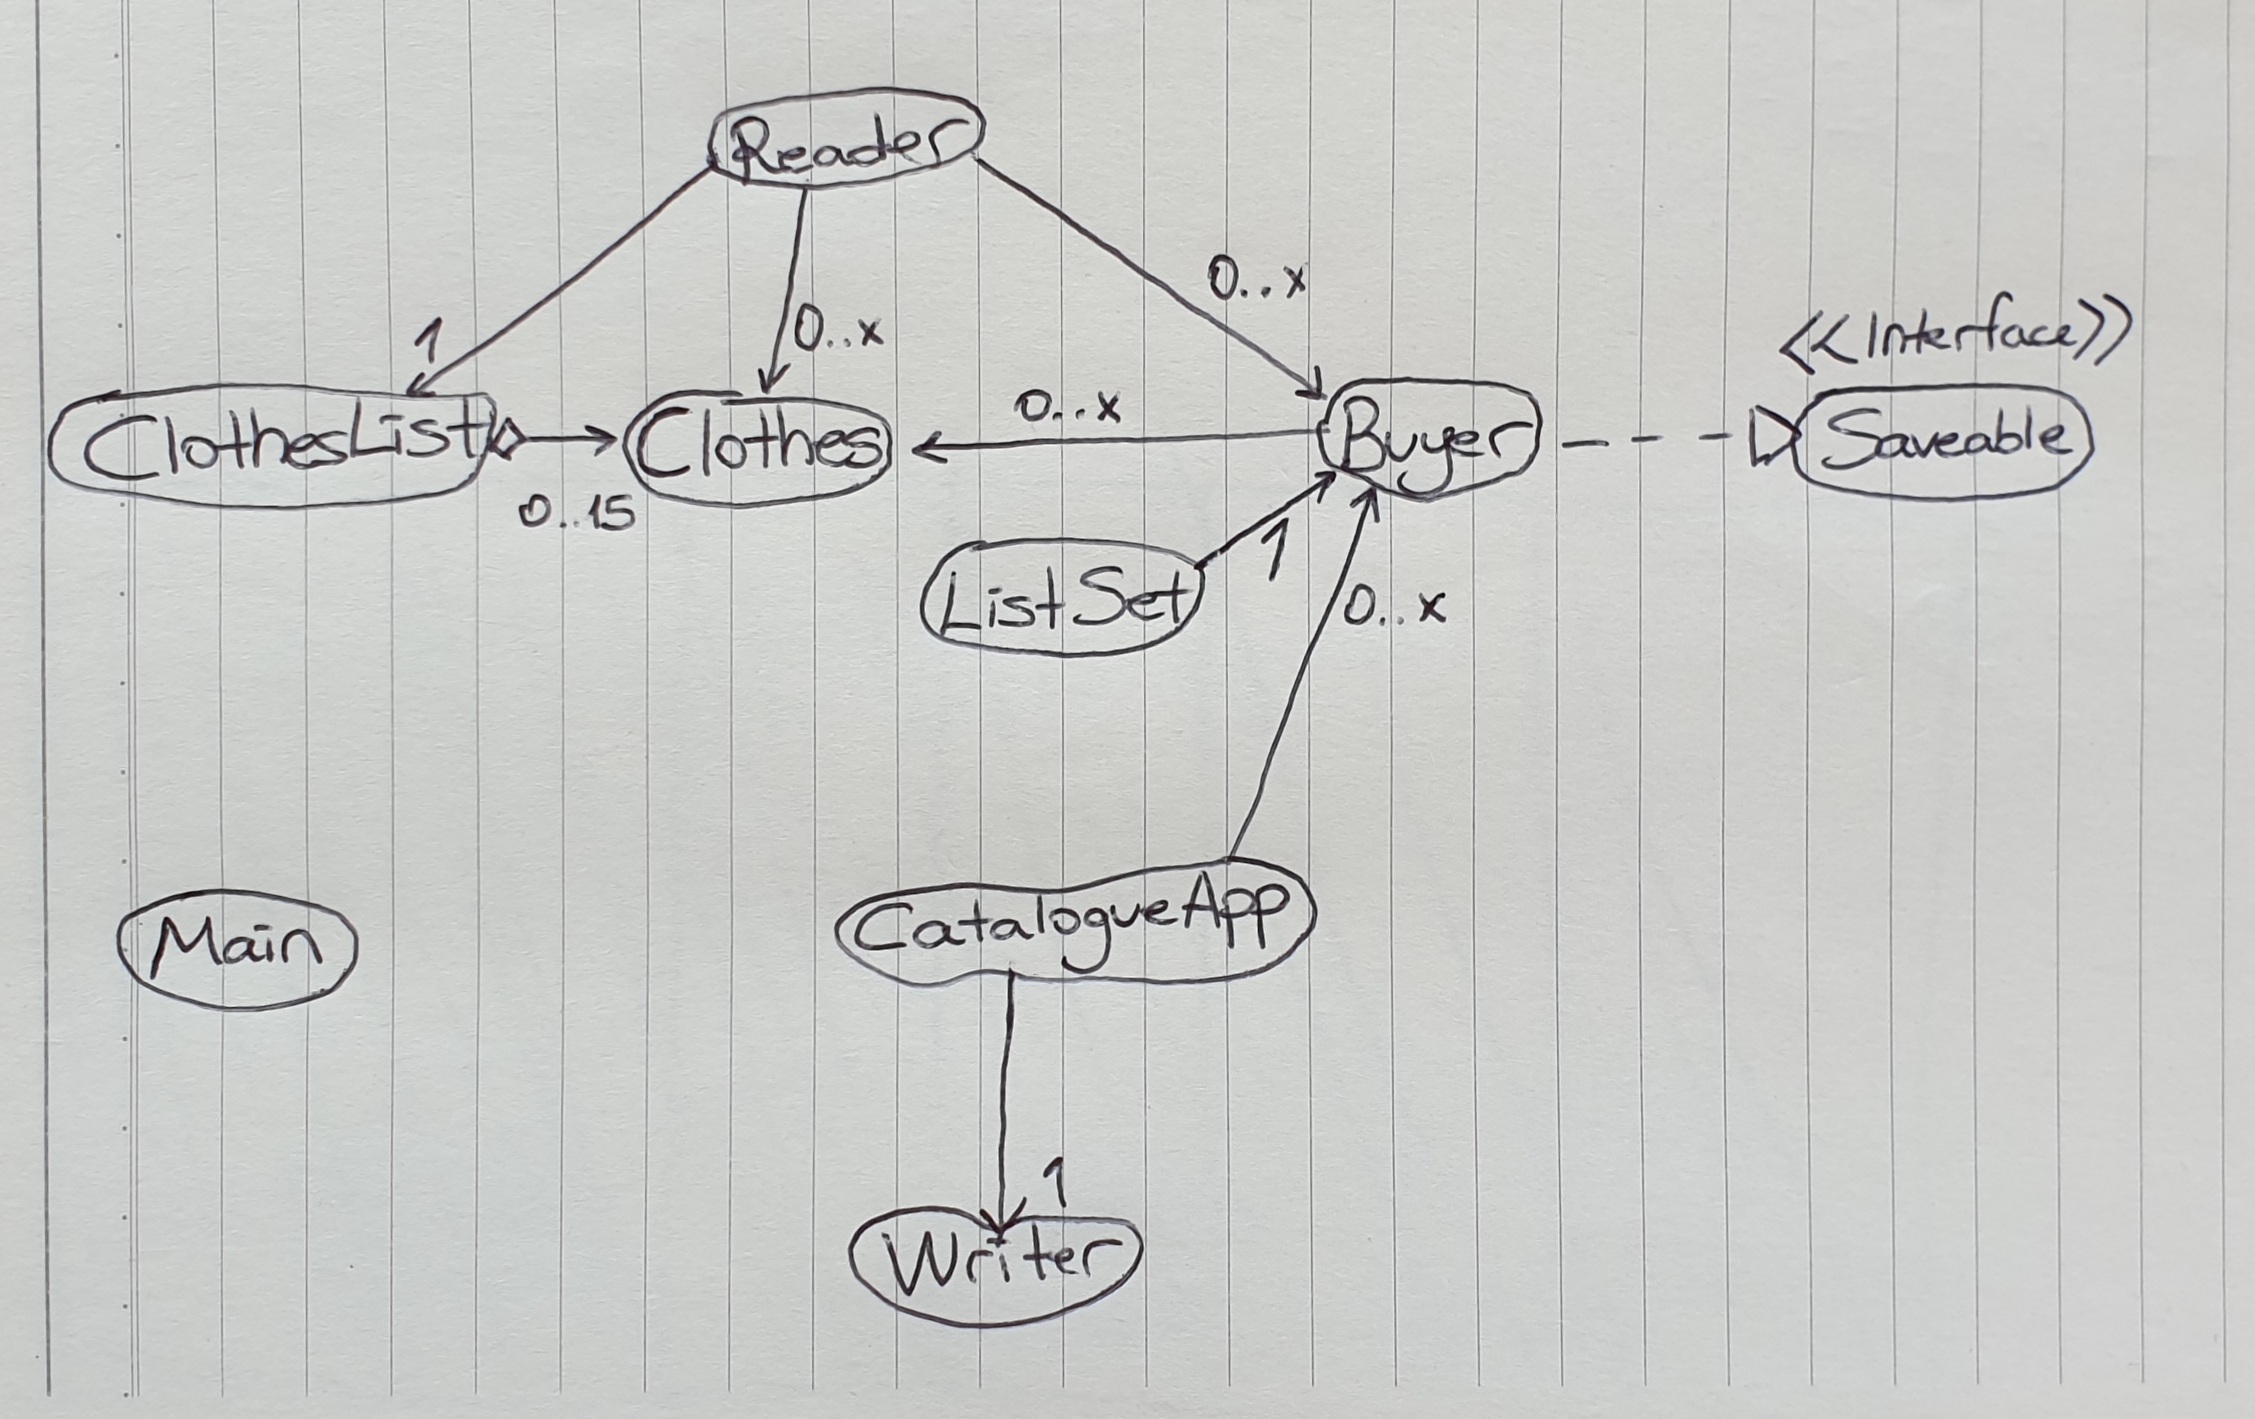 Reader
0..x
1
0..x
<<Interface>>
ClothesList
0..15
Clothes
0..x
Buyer
Saveable
ListSet
1
0..x
Main
CatalogueApp
1
Writer